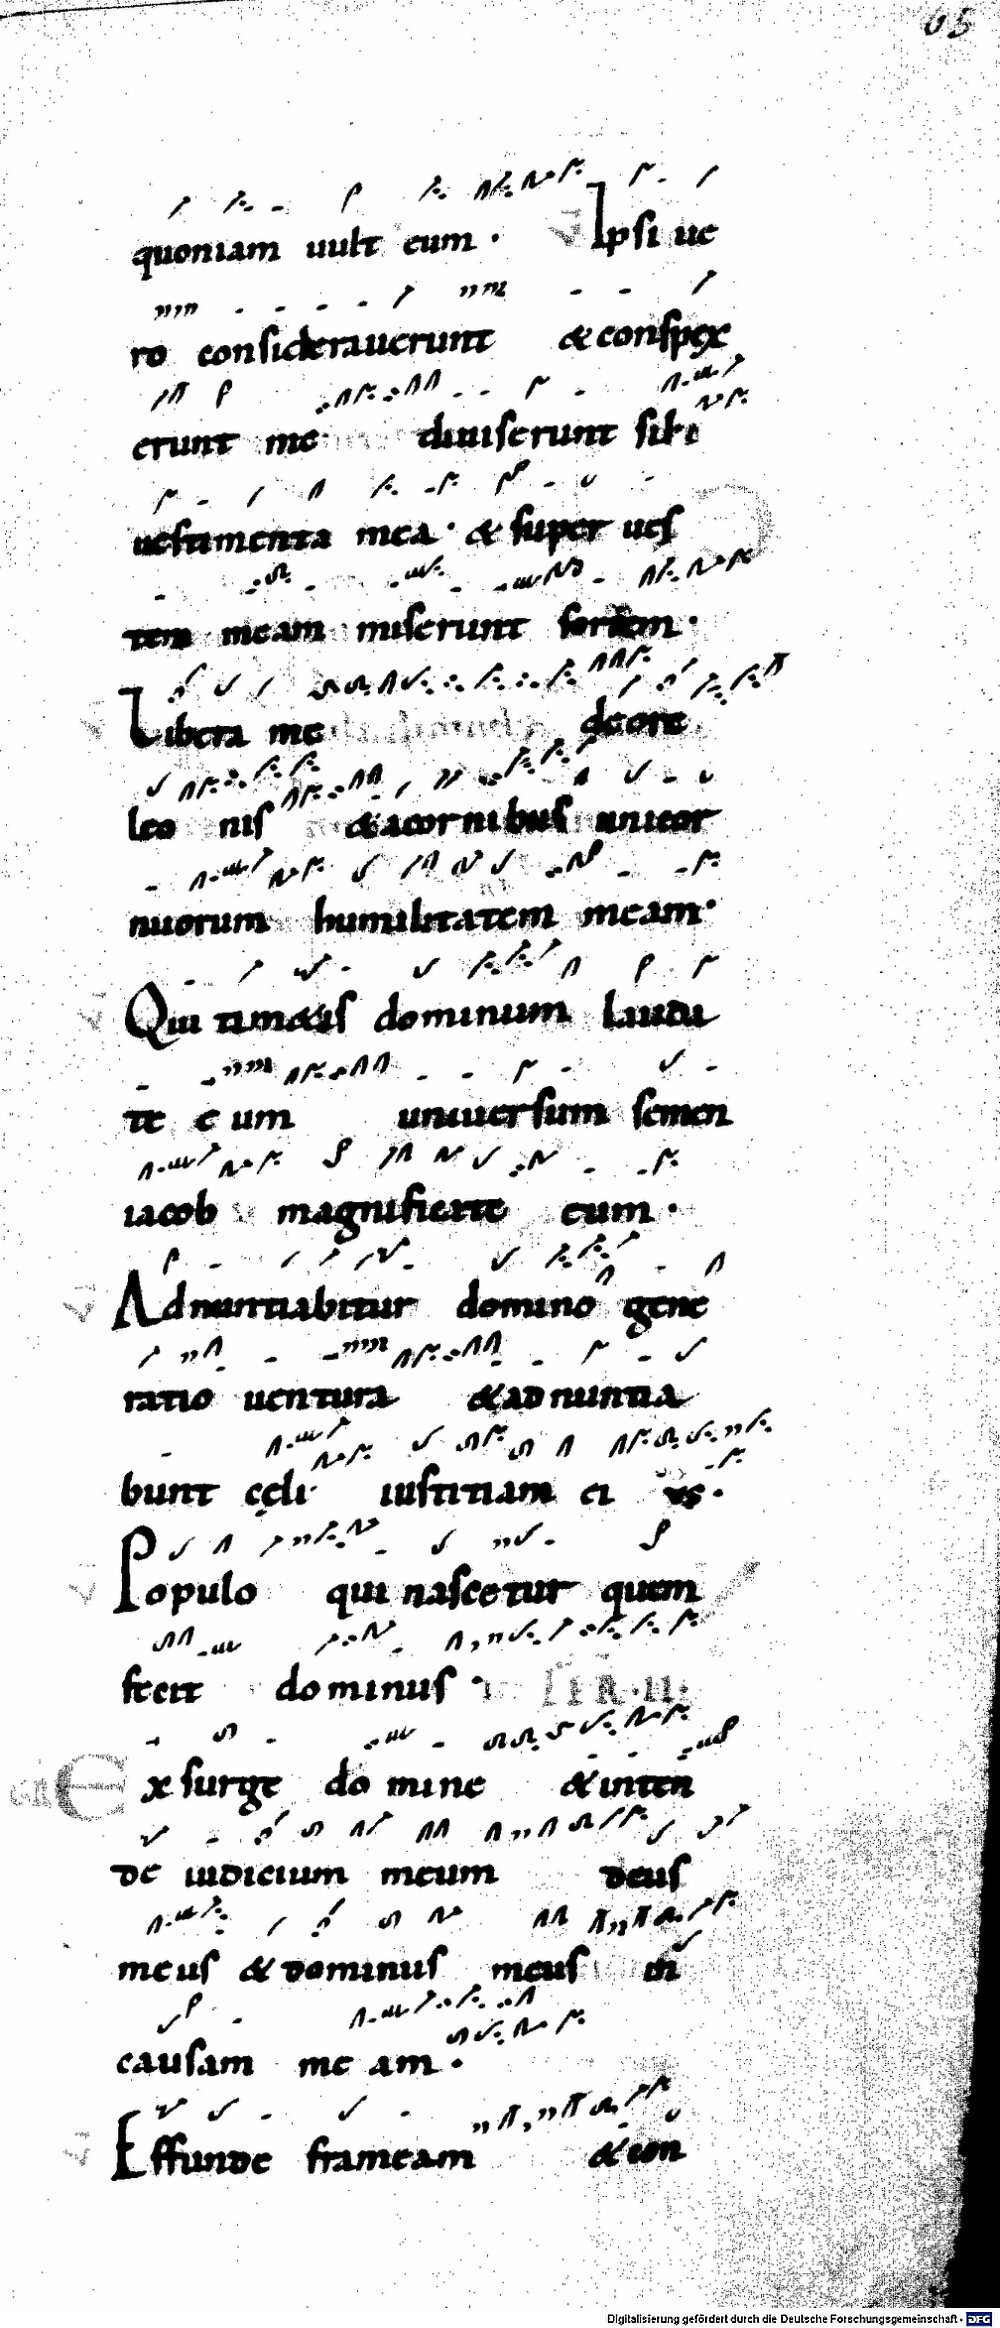 65
quoniam uult eum · V Ipsi ue
ro consideraverunt & conspex
erunt me diuiserunt sibi
uestimenta mea · & super ues
tem meam miserunt sortem ·
V Libera me de ore
leo nis & a cornibus unicor
nuorum humilitatem meam ·
V Qui timetis dominum lauda
te e um uniuersum semen
iacob magnificate eum ·
V Adnuntiabitur domino gene
ratio uentura & adnuntia
bunt cęli iustitiam ei us ·
V Populo qui nascetur quem
fecit dominus · FER · II ·
GR Exsurge do mine & inten
de iudicium meum deus
meus & dominus meus in
causam me am ·
V Effunde frameam & con
Digitalisierung gefördert durch die Deutsche Forschungsgemeinschaft - DFG